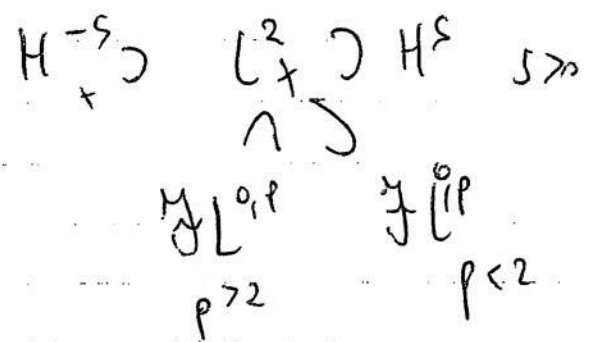 H⁻ˢ ⊃ L² ⊃ Hˢ s>0
∩ ⊃
ℱL⁰,ᵖ ℱL⁰,ᵖ
p>2 p<2